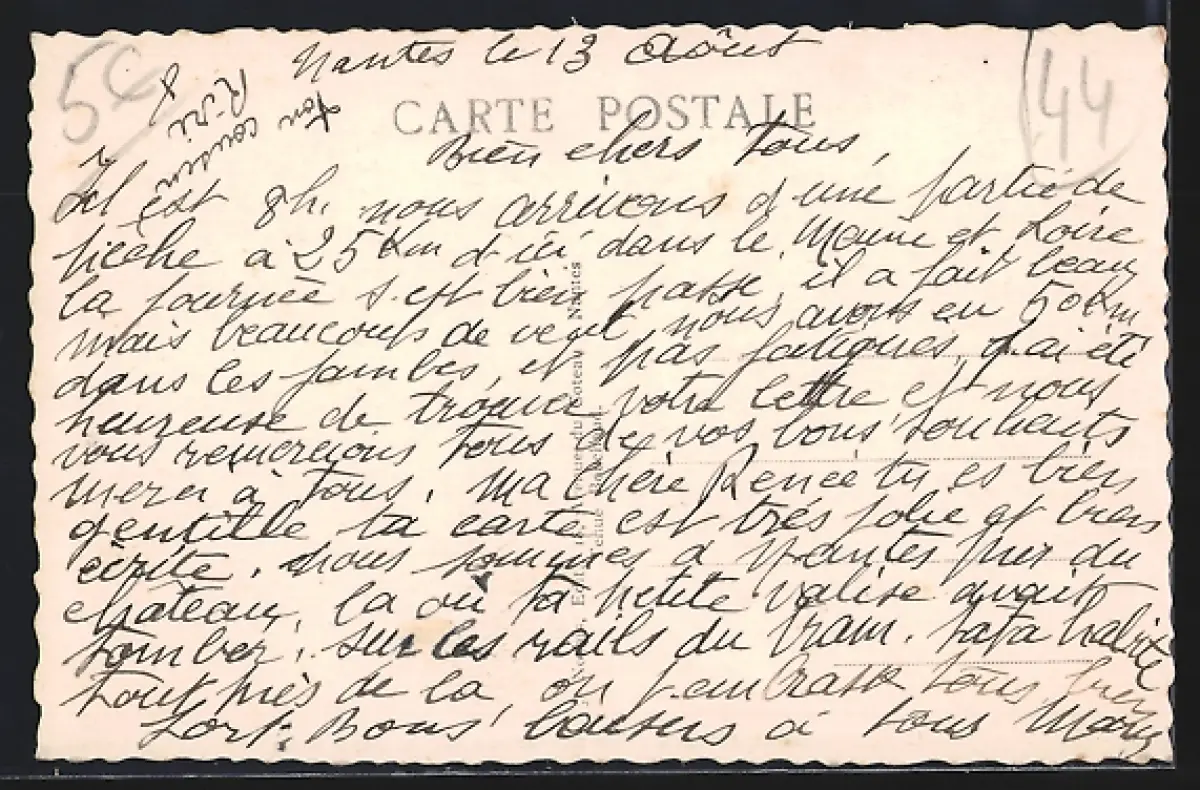 5€
44
Nantes le 13 Août
ton cousin
Riri
CARTE POSTALE
Bien chers Tous,
Il est 8h. nous arrivons d'une partie de
pêche à 25 Km d'ici dans le Maine et Loire
la journée s'est bien passé, il a fait beau
mais beaucoup de vent nous avons eu 50 Km
dans les jambes, et pas fatigués, J'ai été
heureuse de trouver votre lettre et nous
vous remercions tous de vos bons souhaits
merci à Tous. Ma chère Renée tu es bien
gentille ta carte est très jolie et bien
écrite. nous sommes à Nantes près du
château, la où ta petite valise avait
tomber, sur les rails du tram. tata habite
tout près de la, on J'embrasse tous bien
fort. Bons baisers à tous